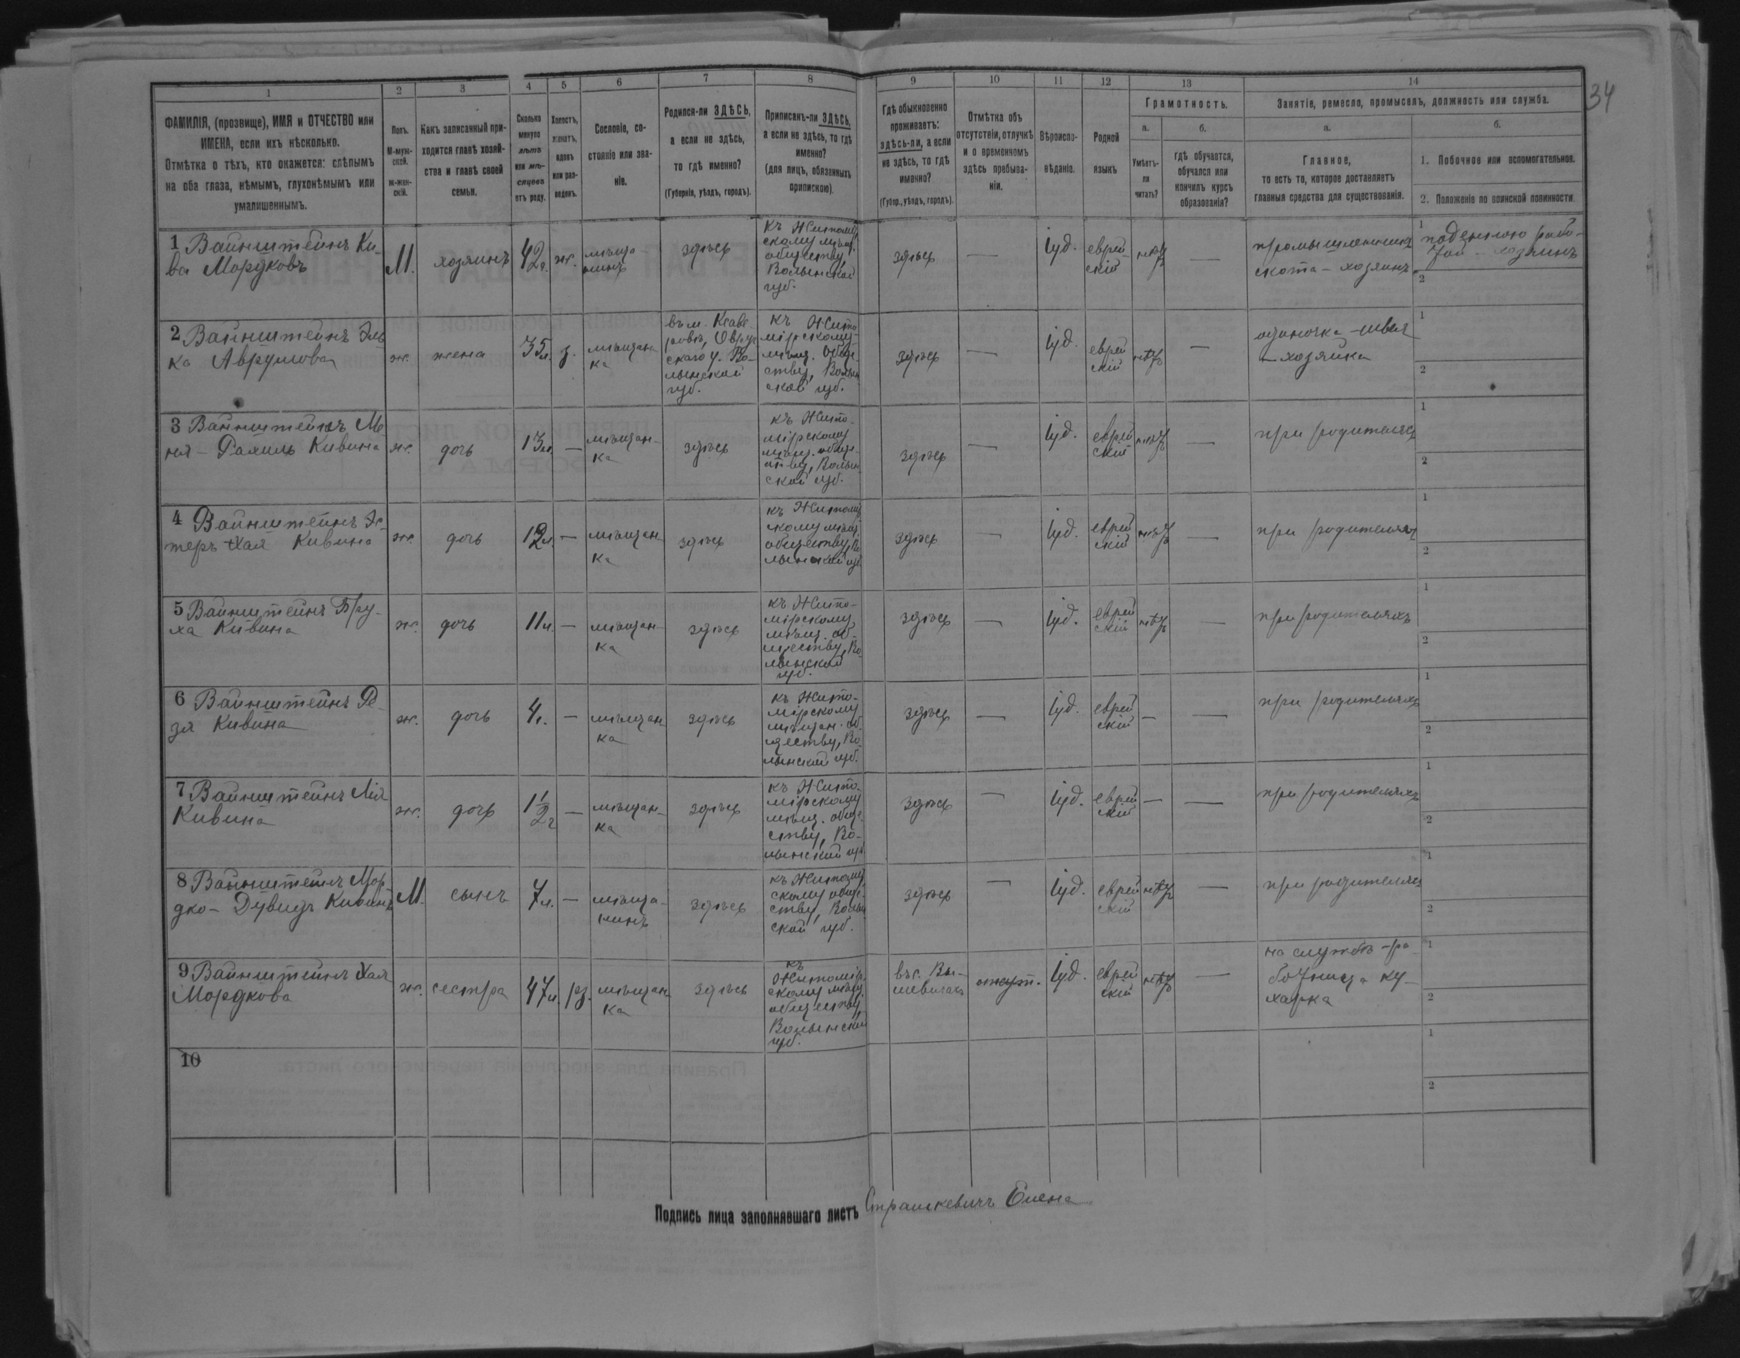 34
1 2 3 4 5 6 7 8 9 10 11 12 13 14
ФАМИЛІЯ, (прозвище), ИМЯ и ОТЧЕСТВО или
ИМЕНА, если ихъ нѣсколько.
Отмѣтка о тѣхъ, кто окажется: слѣпымъ
на оба глаза, нѣмымъ, глухонѣмымъ или
умалишеннымъ.
Полъ.
М-муж-
ской.
ж-жен-
скій.
Какъ записанный при-
ходится главѣ хозяй-
ства и главѣ своей
семьи.
Сколько
минуло
лѣтъ
или мѣ-
сяцевъ
отъ роду.
Холостъ,
женатъ,
вдовъ
или раз-
веденъ.
Сословіе, со-
стояніе или зва-
ніе.
Родился-ли ЗДѢСЬ,
а если не здѣсь,
то гдѣ именно?
(Губернія, уѣздъ, городъ).
Приписанъ-ли ЗДѢСЬ,
а если не здѣсь, то гдѣ
именно?
(для лицъ, обязанныхъ
припискою).
Гдѣ обыкновенно
проживаетъ:
здѣсь-ли, а если
не здѣсь, то гдѣ
именно?
(Губер., уѣздъ, городъ).
Отмѣтка объ
отсутствіи, отлучкѣ
и о временномъ
здѣсь пребыва-
ніи.
Вѣроиспо-
вѣданіе.
Родной
языкъ
Грамотность.
а.
Умѣетъ-
ли
читать?
б.
гдѣ обучается,
обучался или
кончилъ курсъ
образованія?
Занятія, ремесло, промыселъ, должность или служба.
а.
Главное,
то есть то, которое доставляетъ
главныя средства для существованія.
б.
1. Побочное или вспомогательное.
2. Положеніе по воинской повинности.
1 Вайнштейнъ Ки-
ва Мордковъ
М.
хозяинъ
42 г.
ж.
мѣща-
нинъ
здѣсь
Къ Житомир-
скому мѣщ.
обществу,
Волынской
губ.
здѣсь
—
Іуд.
еврей
скій
нѣтъ
—
скота – хозяинъ
1
подённою рабо-
той – хозяинъ
2
2 Вайнштейнъ Эль
ка Аврумова
ж.
жена
35 л.
з.
мѣщан
ка
Овруч
скаго у. Во-
лынской
губ.
къ Жито-
мірскому
мѣщ. обще-
ству, Волын
ской губ.
здѣсь
—
Іуд.
еврей
скій
нѣтъ
—
одиночка – швея
– хозяйка
1
2
3 Вайнштейнъ
Кивина
ж.
дочь
13 л.
—
мѣщан-
ка
здѣсь
къ Жито-
мірскому
мѣщ. обще-
ству, Волын
ской губ.
здѣсь
—
Іуд.
еврей
скій
нѣтъ
—
при родителяхъ
1
2
4 Вайнштейнъ Эс-
теръ Хая Кивина
ж.
дочь
12 л.
—
мѣщан
ка
здѣсь
къ Житомир
скому мѣщ.
обществу, Во
лынской губ.
здѣсь
—
Іуд.
еврей
скій
нѣтъ
—
при родителяхъ
1
2
5 Вайнштейнъ Бру-
ха Кивина
ж.
дочь
11 л.
—
мѣщан-
ка
здѣсь
къ Жито-
мірскому
мѣщ. об-
ществу, Во
лынской
губ.
здѣсь
—
Іуд.
еврей
скій
нѣтъ
—
при родителяхъ
1
2
6 Вайнштейнъ Ре-
зя Кивина
ж.
дочь
4 г.
—
мѣщан
ка
здѣсь
къ Жито-
мірскому
мѣщан. об
ществу, Во
лынской губ.
здѣсь
—
Іуд.
еврей
скій
—
—
при родителяхъ
1
2
7 Вайнштейнъ Лія
Кивина
ж.
дочь
1 1/2 г
—
мѣщан-
ка
здѣсь
къ Жито-
мірскому
мѣщ. обще-
ству, Во-
лынской губ
здѣсь
—
Іуд.
еврей
скій
—
—
при родителяхъ
1
2
8 Вайнштейнъ Мор
дко – Дувидъ Кивинъ
М.
сынъ
7 л.
—
мѣща-
нинъ
здѣсь
къ Житомир
скому обще-
ству, Волын
ской губ.
здѣсь
—
Іуд.
еврей
скій
нѣтъ
—
при родителяхъ
1
2
9 Вайнштейнъ Хая
Мордкова
ж.
сестра
47 л.
рз.
мѣщан
ка
здѣсь
къ
Житомір
скому мѣщ.
обществу
Волынской
губ.
въ с. Вы-
шевичахъ
отсут.
Іуд.
еврей
скій
нѣтъ
—
на службѣ – ра-
ботница ку-
харка
1
2
10
1
2
Подпись лица заполнявшаго листъ Страшкевичъ Елена